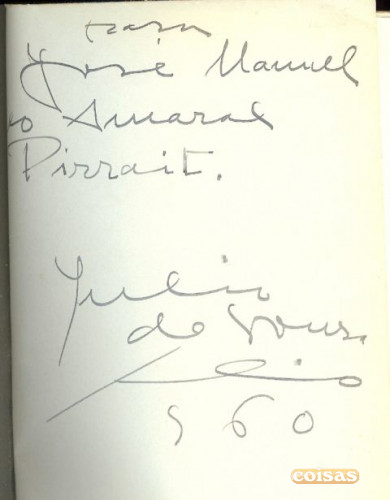 para
José Manuel
o Amaral
Pirrait.
Julio
de Sous.
960
coisas